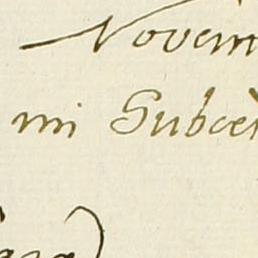 Novem
mi Subce